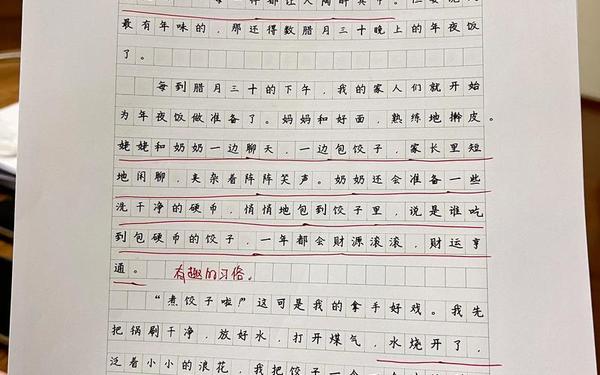 都让人陶醉其中。
最有年味的，那还得数腊月三十晚上的年夜饭
了。
每到腊月三十的下午，我的家人们就开始
为年夜饭做准备了。妈妈和好面，熟练地擀皮。
姥姥和奶奶一边聊天，一边包饺子，家长里短
地闲聊，夹杂着阵阵笑声。奶奶还会准备一些
洗干净的硬币，悄悄地包到饺子里，说是谁吃
到包硬币的饺子，一年都会财源滚滚，财运亨
通。 有趣的习俗。
“煮饺子啦！”这可是我的拿手好戏。我先
把锅刷干净，放好水，打开煤气，水烧开了，
泛着小小的浪花，我把饺子一个